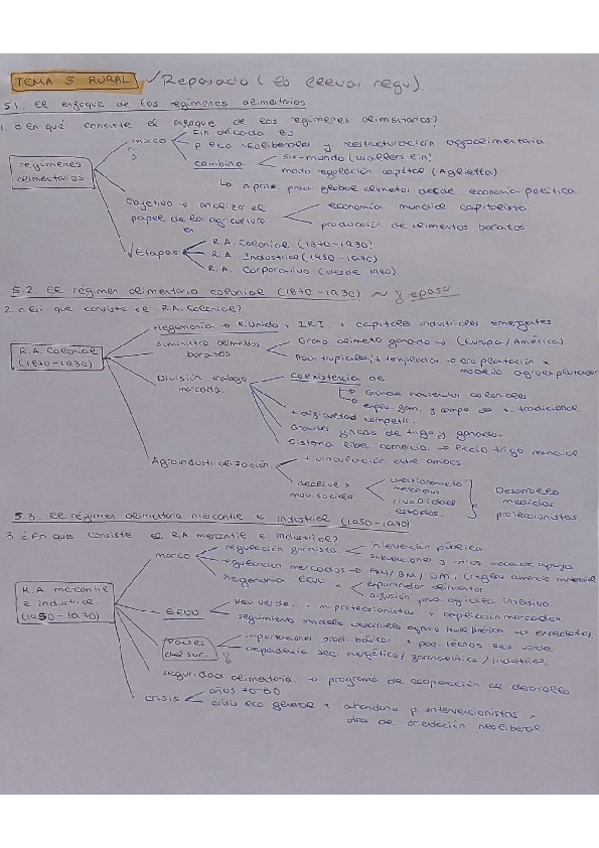 TEMA 3 RURAL ✓ Repasado (lo llevo regu).
5.1. El enfoque de los regímenes alimentarios
1. ¿En qué consiste el enfoque de los regímenes alimentarios?
regímenes alimentarios
inicio
Fin década 80
p eco neoliberales y restructuración agroalimentaria
combina
sis-mundo (Wallerstein)
modo regulación capital (Aglietta)
prod. global alimentos desde economía política.
Objetivo → analizar el papel de la agricultura en
economía mundial capitalista
producción de alimentos baratos
✓ Etapas
R.A. Colonial (1870-1930)
R.A. Industrial (1950-1970)
R.A. Corporativo (desde 1980)
5.2. El régimen alimentario colonial (1870-1930) y epasa
2. ¿En que consiste el R.A. Colonial?
R.A. Colonial (1870-1930)
Hegemonía → R.Unido + I.R.I + capitales industriales emergentes
suministro alimentos baratos
Grano alimento ganado → (Europa/América)
tropicales templados → eco plantación × modelo agroexportador
División trabajo mercado.
Coexistencia de
Granja coloniales
explo. gam. y campo se + tradicional
+ competit.
Grandes de trigo y ganado.
Sistema libre comercio → Precio trigo mundial
Agroindustrialización
+ vinculación entre ambos
declive × mov. sociales
cuestionamiento mercados
rivalidad estados.
Desarrollo medidas proteccionistas
5.3. El régimen alimentario mercantil e industrial (1950-1970)
3 ¿En que consiste el RA mercantil e industrial?
R.A mercantil e industrial (1950-1970)
marco
regulación
intervención pública
subvenciones y otros meca de apoyo
regulación mercados → FMI/BM/OMC (reglas comercio internacional)
hegemonía EEUU ×
exportador alimentos
difusión prod. agrícola intensivo.
EEUU
Rev verde + m proteccionistas + ampliación mercados
seguimiento modelo
Países del sur.
importaciones prod. básicos + paq. técnos rev verde
dependencia sec. energético/farmacéutico/industrial.
seguridad alimentaria → programa de cooperación al desarrollo
crisis
años 70-80
crisis eco general + abandono p. intervencionistas × otras de orientación neoliberal.